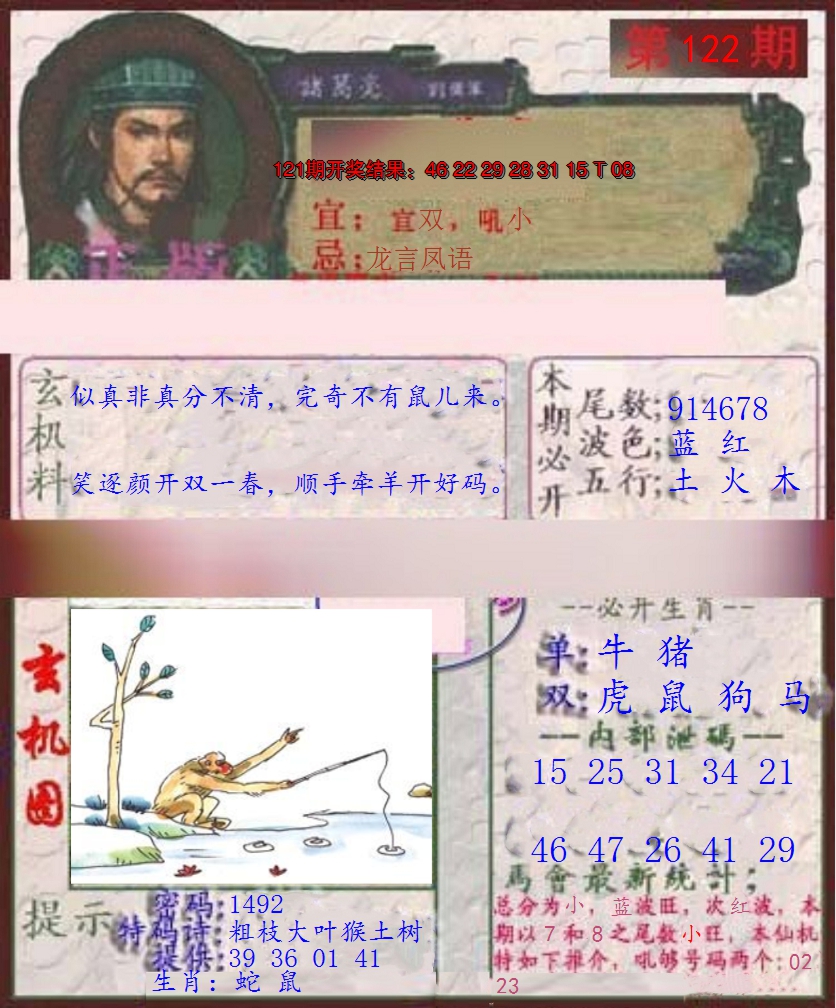 第 122 期
諸葛亮
121期开奖结果：46 22 29 28 31 15 T 08
宜：宜双，吼小
忌：龙言凤语
正版
玄机料
似真非真分不清，完奇不有鼠儿来。
笑逐颜开双一春，顺手牵羊开好码。
本期必开
尾数:914678
波色:蓝 红
五行:土 火 木
玄机图
--必开生肖--
单:牛 猪
双:虎 鼠 狗 马
--内部泄碼--
15 25 31 34 21
46 47 26 41 29
馬會最新统計;
总分为小，蓝波旺，次红波，本
期以7和8之尾数小旺，本仙机
特如下推介，吼够号码两个:02
23
提示
密码:1492
特码诗:粗枝大叶猴土树
提供:39 36 01 41
生肖：蛇 鼠